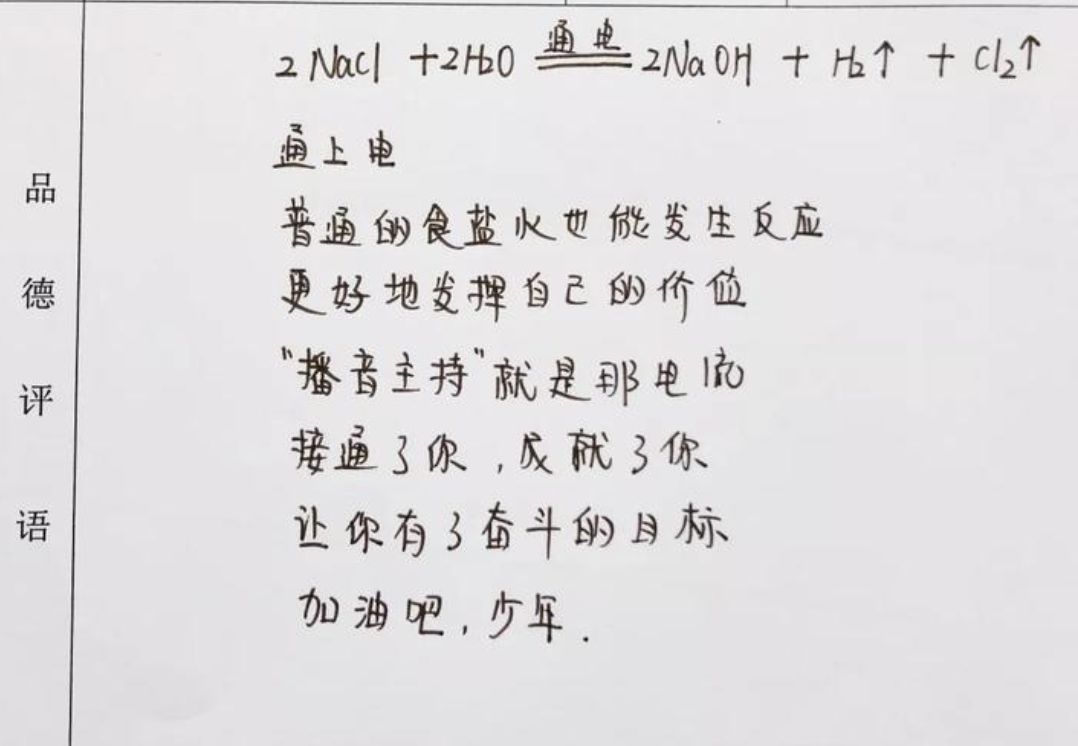 2NaCl + 2H2O 通电 2NaOH + H2↑ + Cl2↑
通上电
普通的食盐水也能发生反应
更好地发挥自己的价值
"播音主持"就是那电流
接通了你,成就了你
让你有了奋斗的目标
加油吧,少年.
品德评语